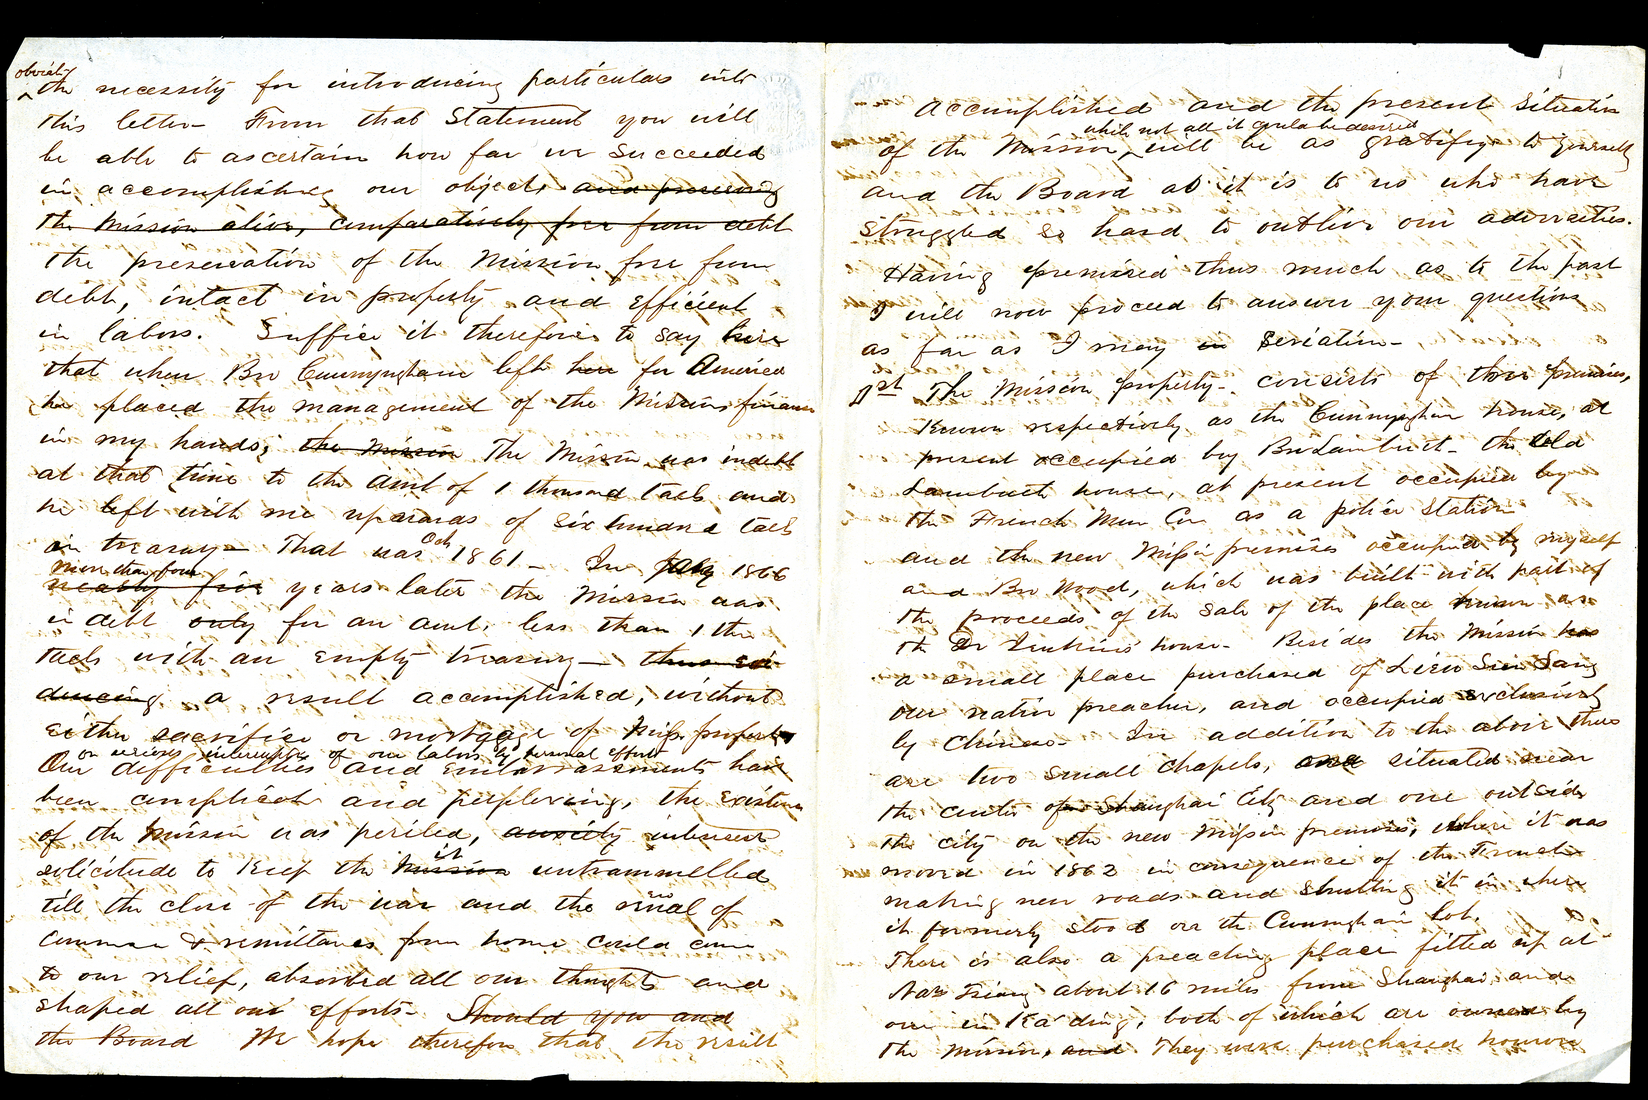 obviating
the necessity for introducing particulars into
this letter— From that Statement you will
be able to ascertain how far we succeeded
in accomplishing our object, and preserving
the Mission alive, comparatively free from debt
the preservation of the Mission free from
debt, intact in property and efficient
in labors. Suffice it therefore to say here
that when Bro Cunnyngham left here for America
he placed the management of the Missions finances
in my hands; the Mission The Mission was indebt
at that time to the amt of 1 thousand taels and
he left with me upwards of six hundred taels
in treasury— That was Oct 1861— In Jany 1866
more than four
nearly five years later the Mission was
in debt only for an amt. less than 1 tho
taels with an empty treasury— thus evi-
dencing a result accomplished, without
either sacrifice or mortgage of Miss. property
or serious interruption of our labors by personal effort
Our difficulties and embarrassments have
been complicate and perplexing, the existence
of the Mission was periled, anxiety intensest
solicitude to keep the Mission it untrammelled
till the close of the war and the revival of
commerce & remittances from home could come
to our relief, absorbed all our thoughts and
shaped all our efforts— Should you and
the Board We hope therefore that the result
accomplished and the present situation
which not all it could be desired
of the Mission, will be as gratifying to yourself
and the Board as it is to us who have
struggled so hard to outlive our adversities.
Having premised thus much as to the past
I will now proceed to answer your questions
as far as I may in seriatim—
1st The Mission property— consists of three premises,
known respectively as the Cunnyngham house, at
present occupied by Bro Lambuth— the old
Lambuth house, at present occupied by
the French Mun Con as a police station
and the new Mission premises occupied by myself
and Bro Wood, which was built with part of
the proceeds of the sale of the place known as
the Dr Jenkins' house— Besides the Mission has
a small place purchased of Liew Sien Sang
our native preacher, and occupied exclusively
by Chinese— In addition to the above there
are two small chapels, one situated near
the center of Shanghai City and one outside
the city on the new Mission premises, where it was
moved in 1862 in consequence of the French
making new roads and shutting it in where
it formerly stood on the Cunnyngham lot.
There is also a preaching place fitted up at
Nan Tsiang about 16 miles from Shanghai and
one in Ka'ding, both of which are owned by
the Mission, and They were purchased however